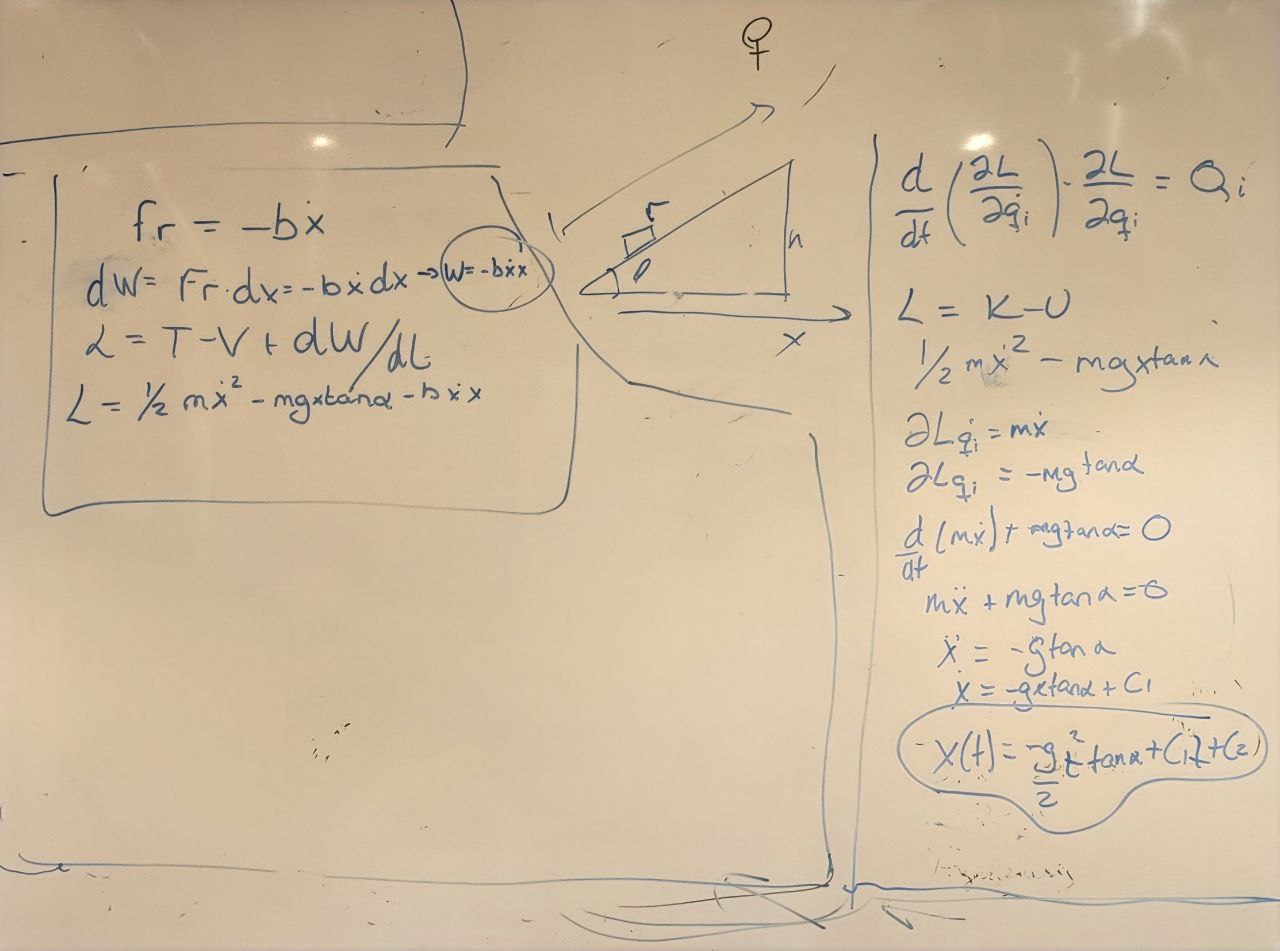 fr = -bẋ
dW= Fr·dx=-bẋdx→W=-bẋx
L = T-V + dW/dt
L = 1/2 mẋ² - mgxtanα - bẋx
r
h
x
d/dt (∂L/∂q̇i) - ∂L/∂qi = Qi
L = K-U
1/2 mẋ² - mgxtanα
∂Lq̇i = mẋ
∂Lqi = -mgtanα
d/dt (mẋ) + mgtanα= 0
mẍ + mgtanα=0
ẍ = -gtanα
ẋ = -gxtanα + C1
X(t) = -g/2 t² tanα + C1t + C2